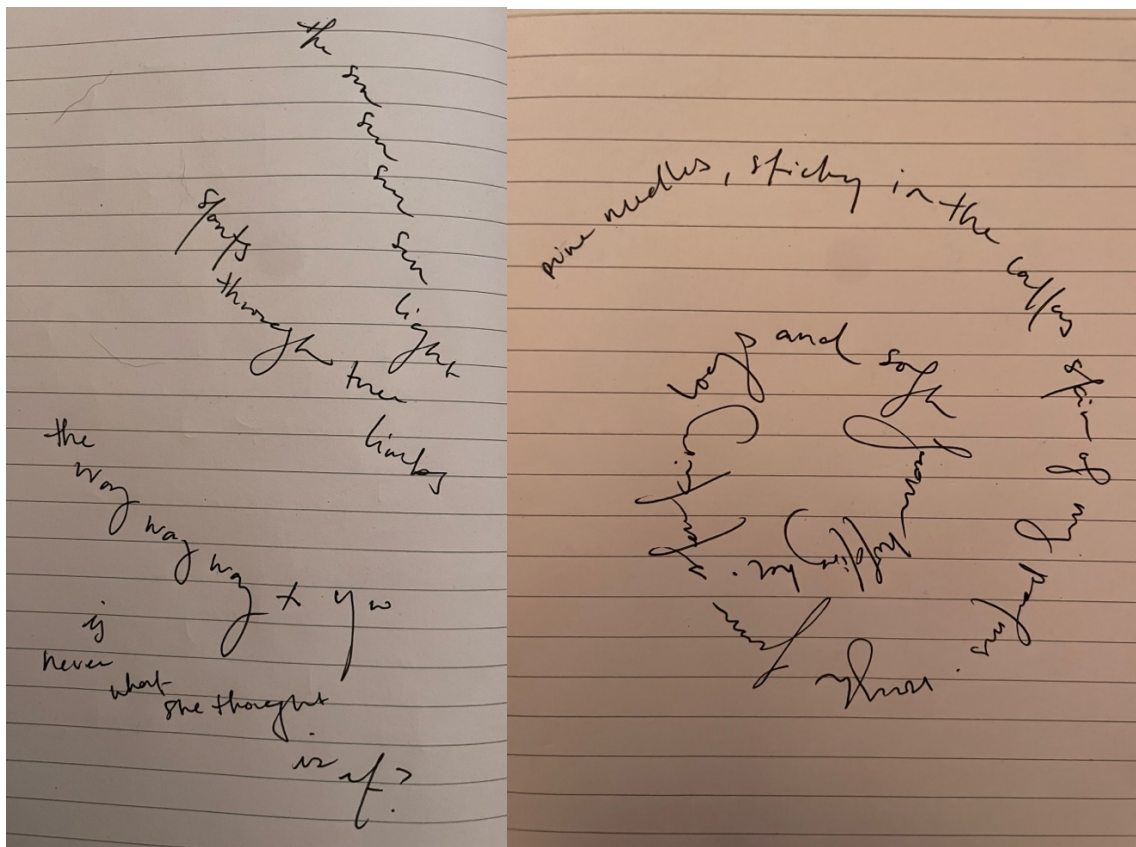 the
sun
sun
sun
sun
light
slants
through
tree
limbs
the
way
way
way
you
is
never
what
she thought
is it?
pine needles, sticky in the callus skin of my palms. rough from logs and soft from her.